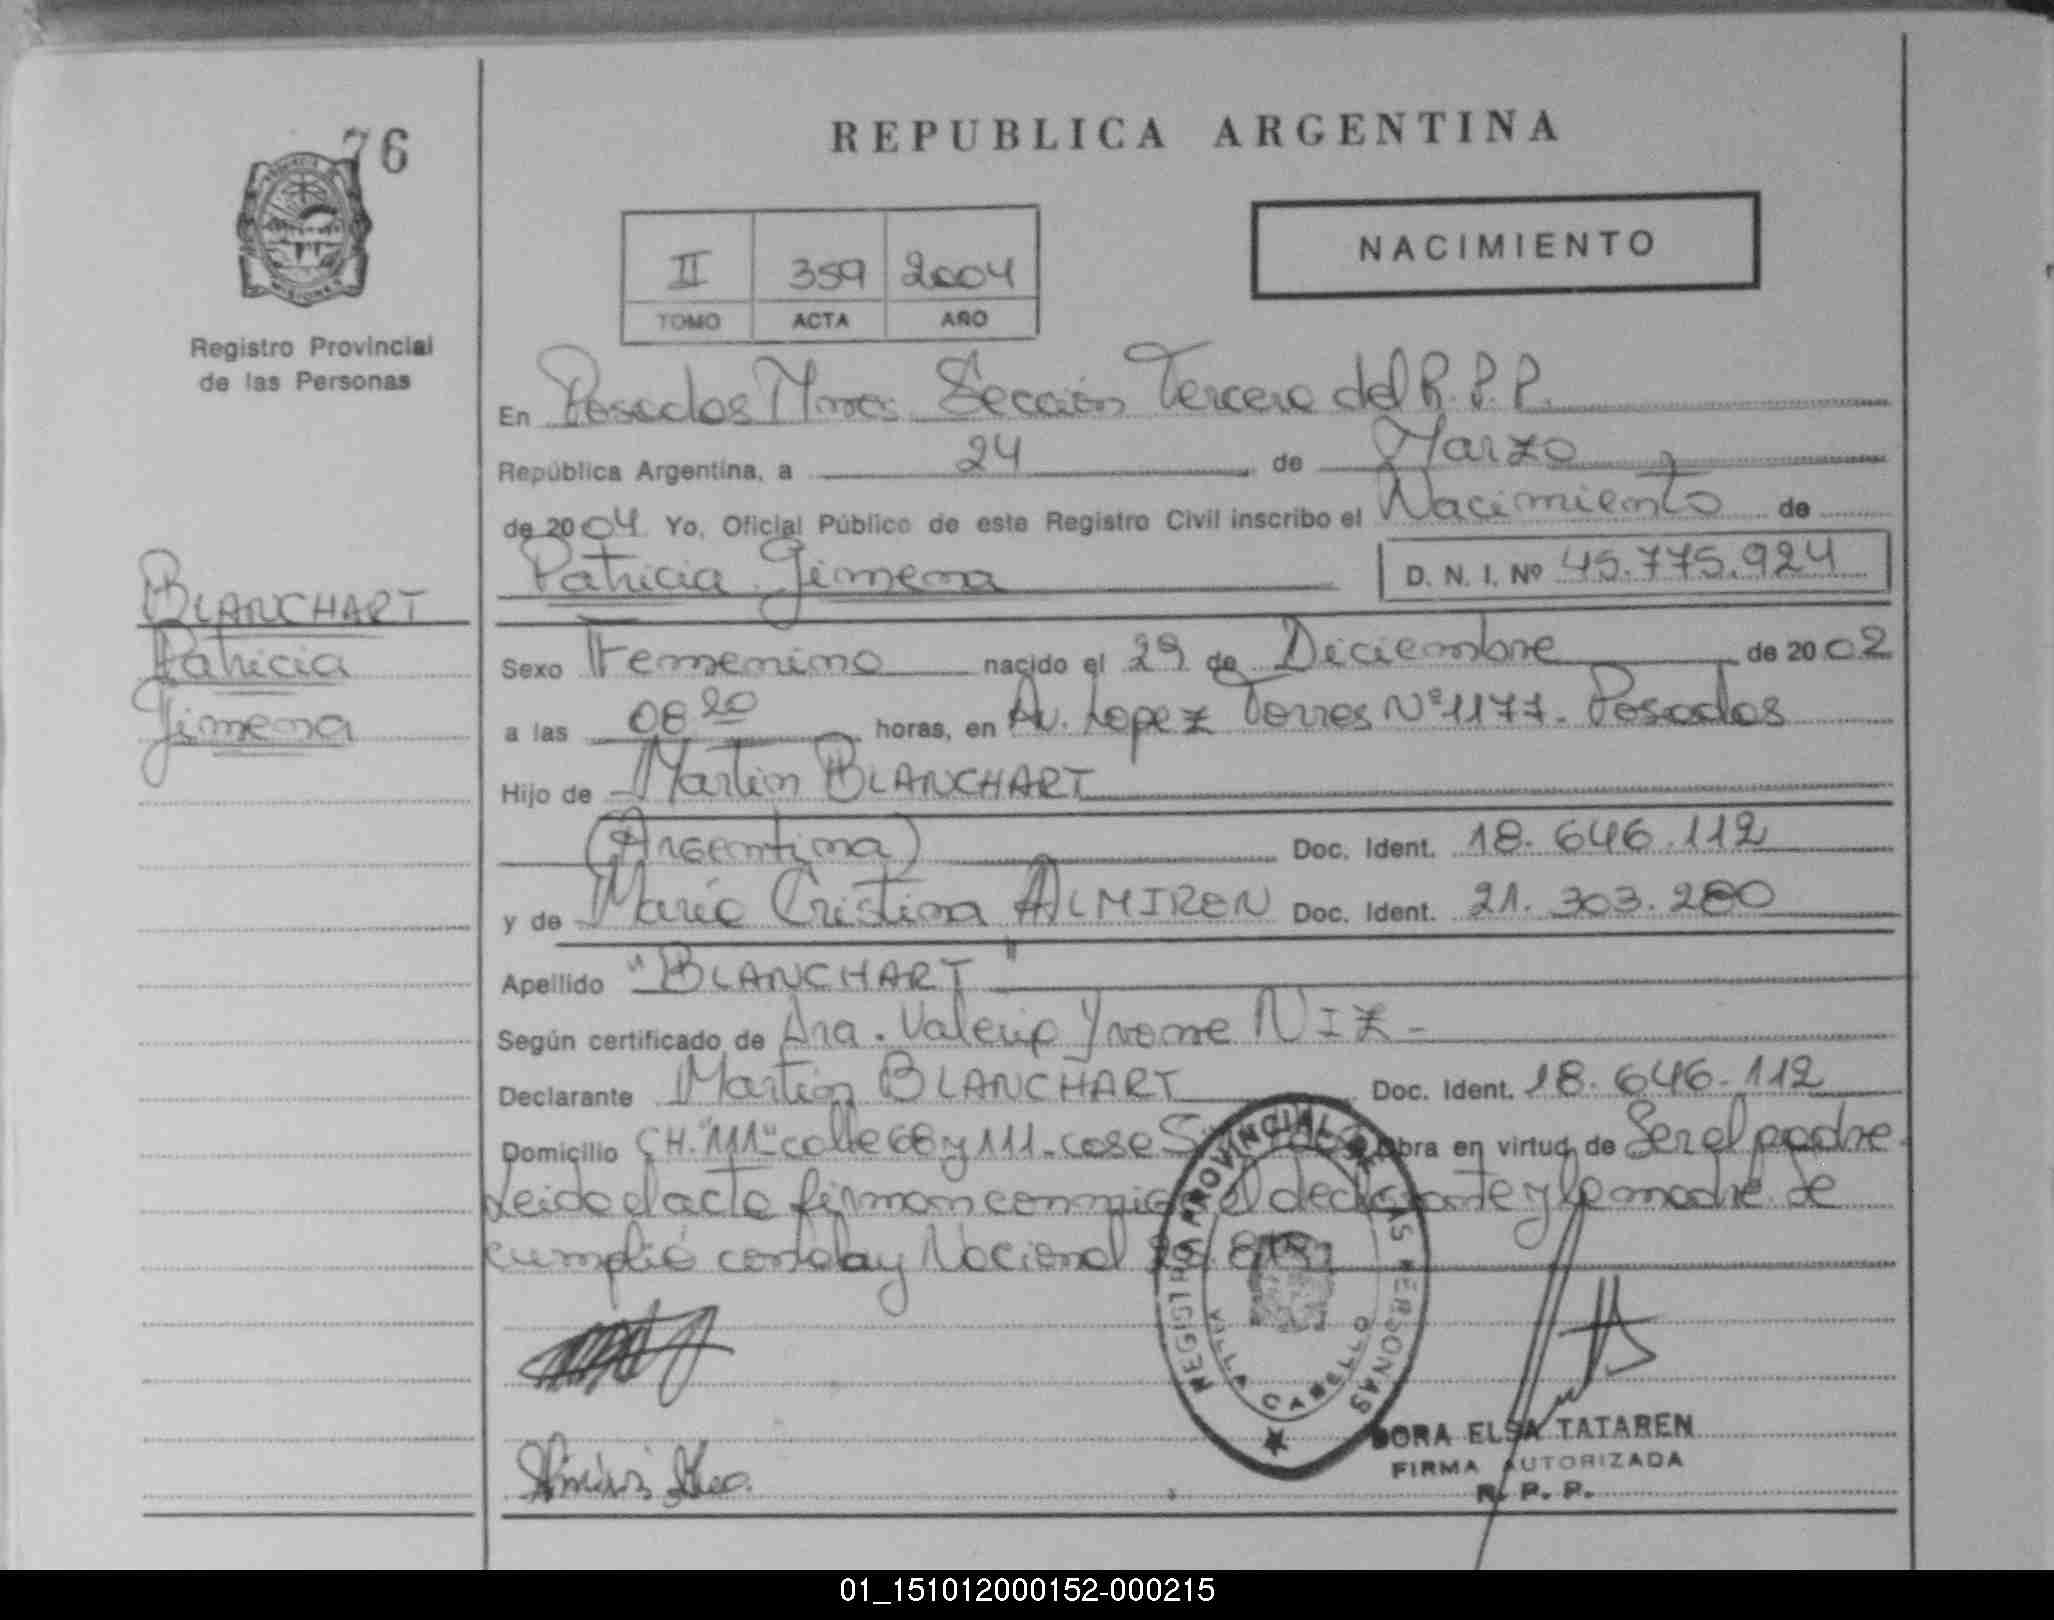 76
REPUBLICA ARGENTINA
NACIMIENTO
II 359 2004
TOMO ACTA AÑO
Registro Provincial
de las Personas
En Posadas Mnes. Sección Tercera del R.P.P.
República Argentina, a 24 de Marzo
de 2004 Yo, Oficial Público de este Registro Civil inscribo el Nacimiento de
Patricia Gimena D. N. I. Nº 45.775.924
BLANCHART
Patricia
Gimena
Sexo Femenino nacido el 29 de Diciembre de 2002
a las 08 20 horas, en Av. Lopez Torres Nº 1177. Posadas
Hijo de Martin BLANCHART
(Argentina) Doc. Ident. 18.646.112
y de María Cristina ALMIRON Doc. Ident. 21.303.280
Apellido "BLANCHART"
Según certificado de Dra. Valeria Yvonne NIZ -
Declarante Martin BLANCHART Doc. Ident. 18.646.112
Domicilio CH. "111" calle 68 y 111 - casa Obra en virtud de Ser el padre.
Leida el acta firman conmigo el declarante y la madre. Se
cumplió con la Ley Nacional
REGISTRO PROVINCIAL DE LAS PERSONAS
VILLA CABELLO
DORA ELSA TATAREN
FIRMA AUTORIZADA
R. P. P.
01_151012000152-000215